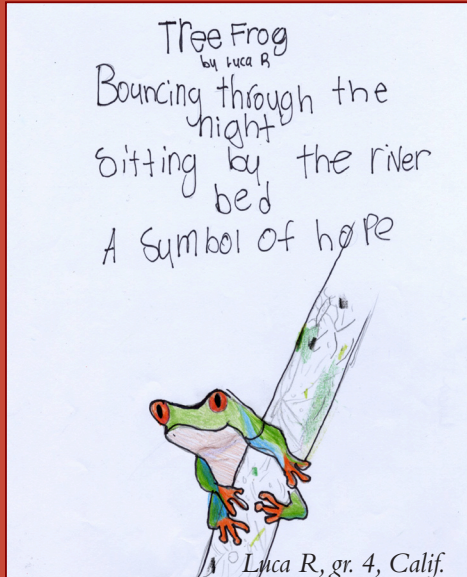 Tree Frog
by Luca R
Bouncing through the
night
Sitting by the river
bed
A Symbol of hope
Luca R, gr. 4, Calif.